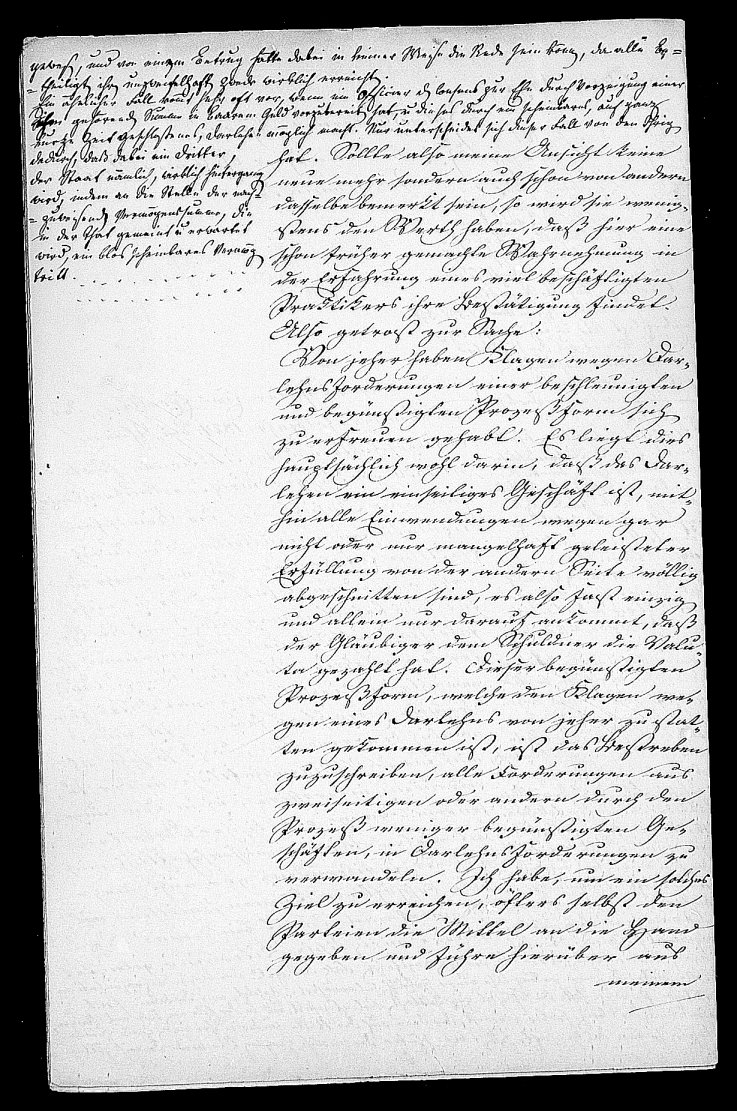 gewes, und von einem Betrug hatte dabei in keiner Weise die Rede sein können, da alle Be-
theiligt ihre unzweifelhaft Zwecke wirklich erreicht.
Ein ähnlicher Fall kommt sehr oft vor, wenn ein Officier d Consens zur Ehe durch Vorzeigung einer
gehörenden Summe in baarem Geld vorzubereit hat, u dieses durch ein scheinbares, auf ganz
kurze Zeit geschlossenes, Darlehen möglich macht. Nur unterscheidet sich dieser Fall von den Übrig
dadurch, daß dabei ein Dritter,
der Staat nämlich, wirklich hintergang
wird, indem an die Stelle der nach-
zuweisend Vermögenssumme, die
in der That gemeint u erwartet
wird, ein blos scheinbares Vermög
tritt.
hat. Sollte also meine Ansicht keine
neue mehr sondern auch schon von andern
dasselbe bemerkt sein, so wird sie wenig-
stens den Werth haben, daß hier eine
schon früher gemachte Wahrnehmung in
der Erfahrung eines viel beschäftigten
Praktikers ihre Bestätigung findet.
Also getrost zur Sache:
Von jeher haben Klagen wegen Dar-
lehnsforderungen einer beschleunigten
und begünstigten Prozeßform sich
zu erfreuen gehabt. Es liegt dies
hauptsächlich wohl darin, daß das Dar-
lehen ein einseitiges Geschäft ist, mit-
hin alle Einwendungen wegen gar
nicht oder nur mangelhaft geleisteter
Erfüllung von der andern Seite völlig
abgeschnitten sind, es also fast einzig
und allein nur darauf ankommt, daß
der Gläubiger dem Schuldner die Valu-
ta gezahlt hat. Dieser begünstigten
Prozeßform, welche den Klagen we-
gen eines Darlehns von jeher zu stat-
ten gekommen ist, ist das Bestreben
zuzuschreiben, alle Forderungen aus
zweiseitigen oder andern durch den
Prozeß weniger begünstigten Ge-
schäften, in Darlehnsforderungen zu
verwandeln. Ich habe, um ein solches
Ziel zu erreichen, öfters selbst den
Parteien die Mittel an die Hand
gegeben und führe hierüber aus
meinem